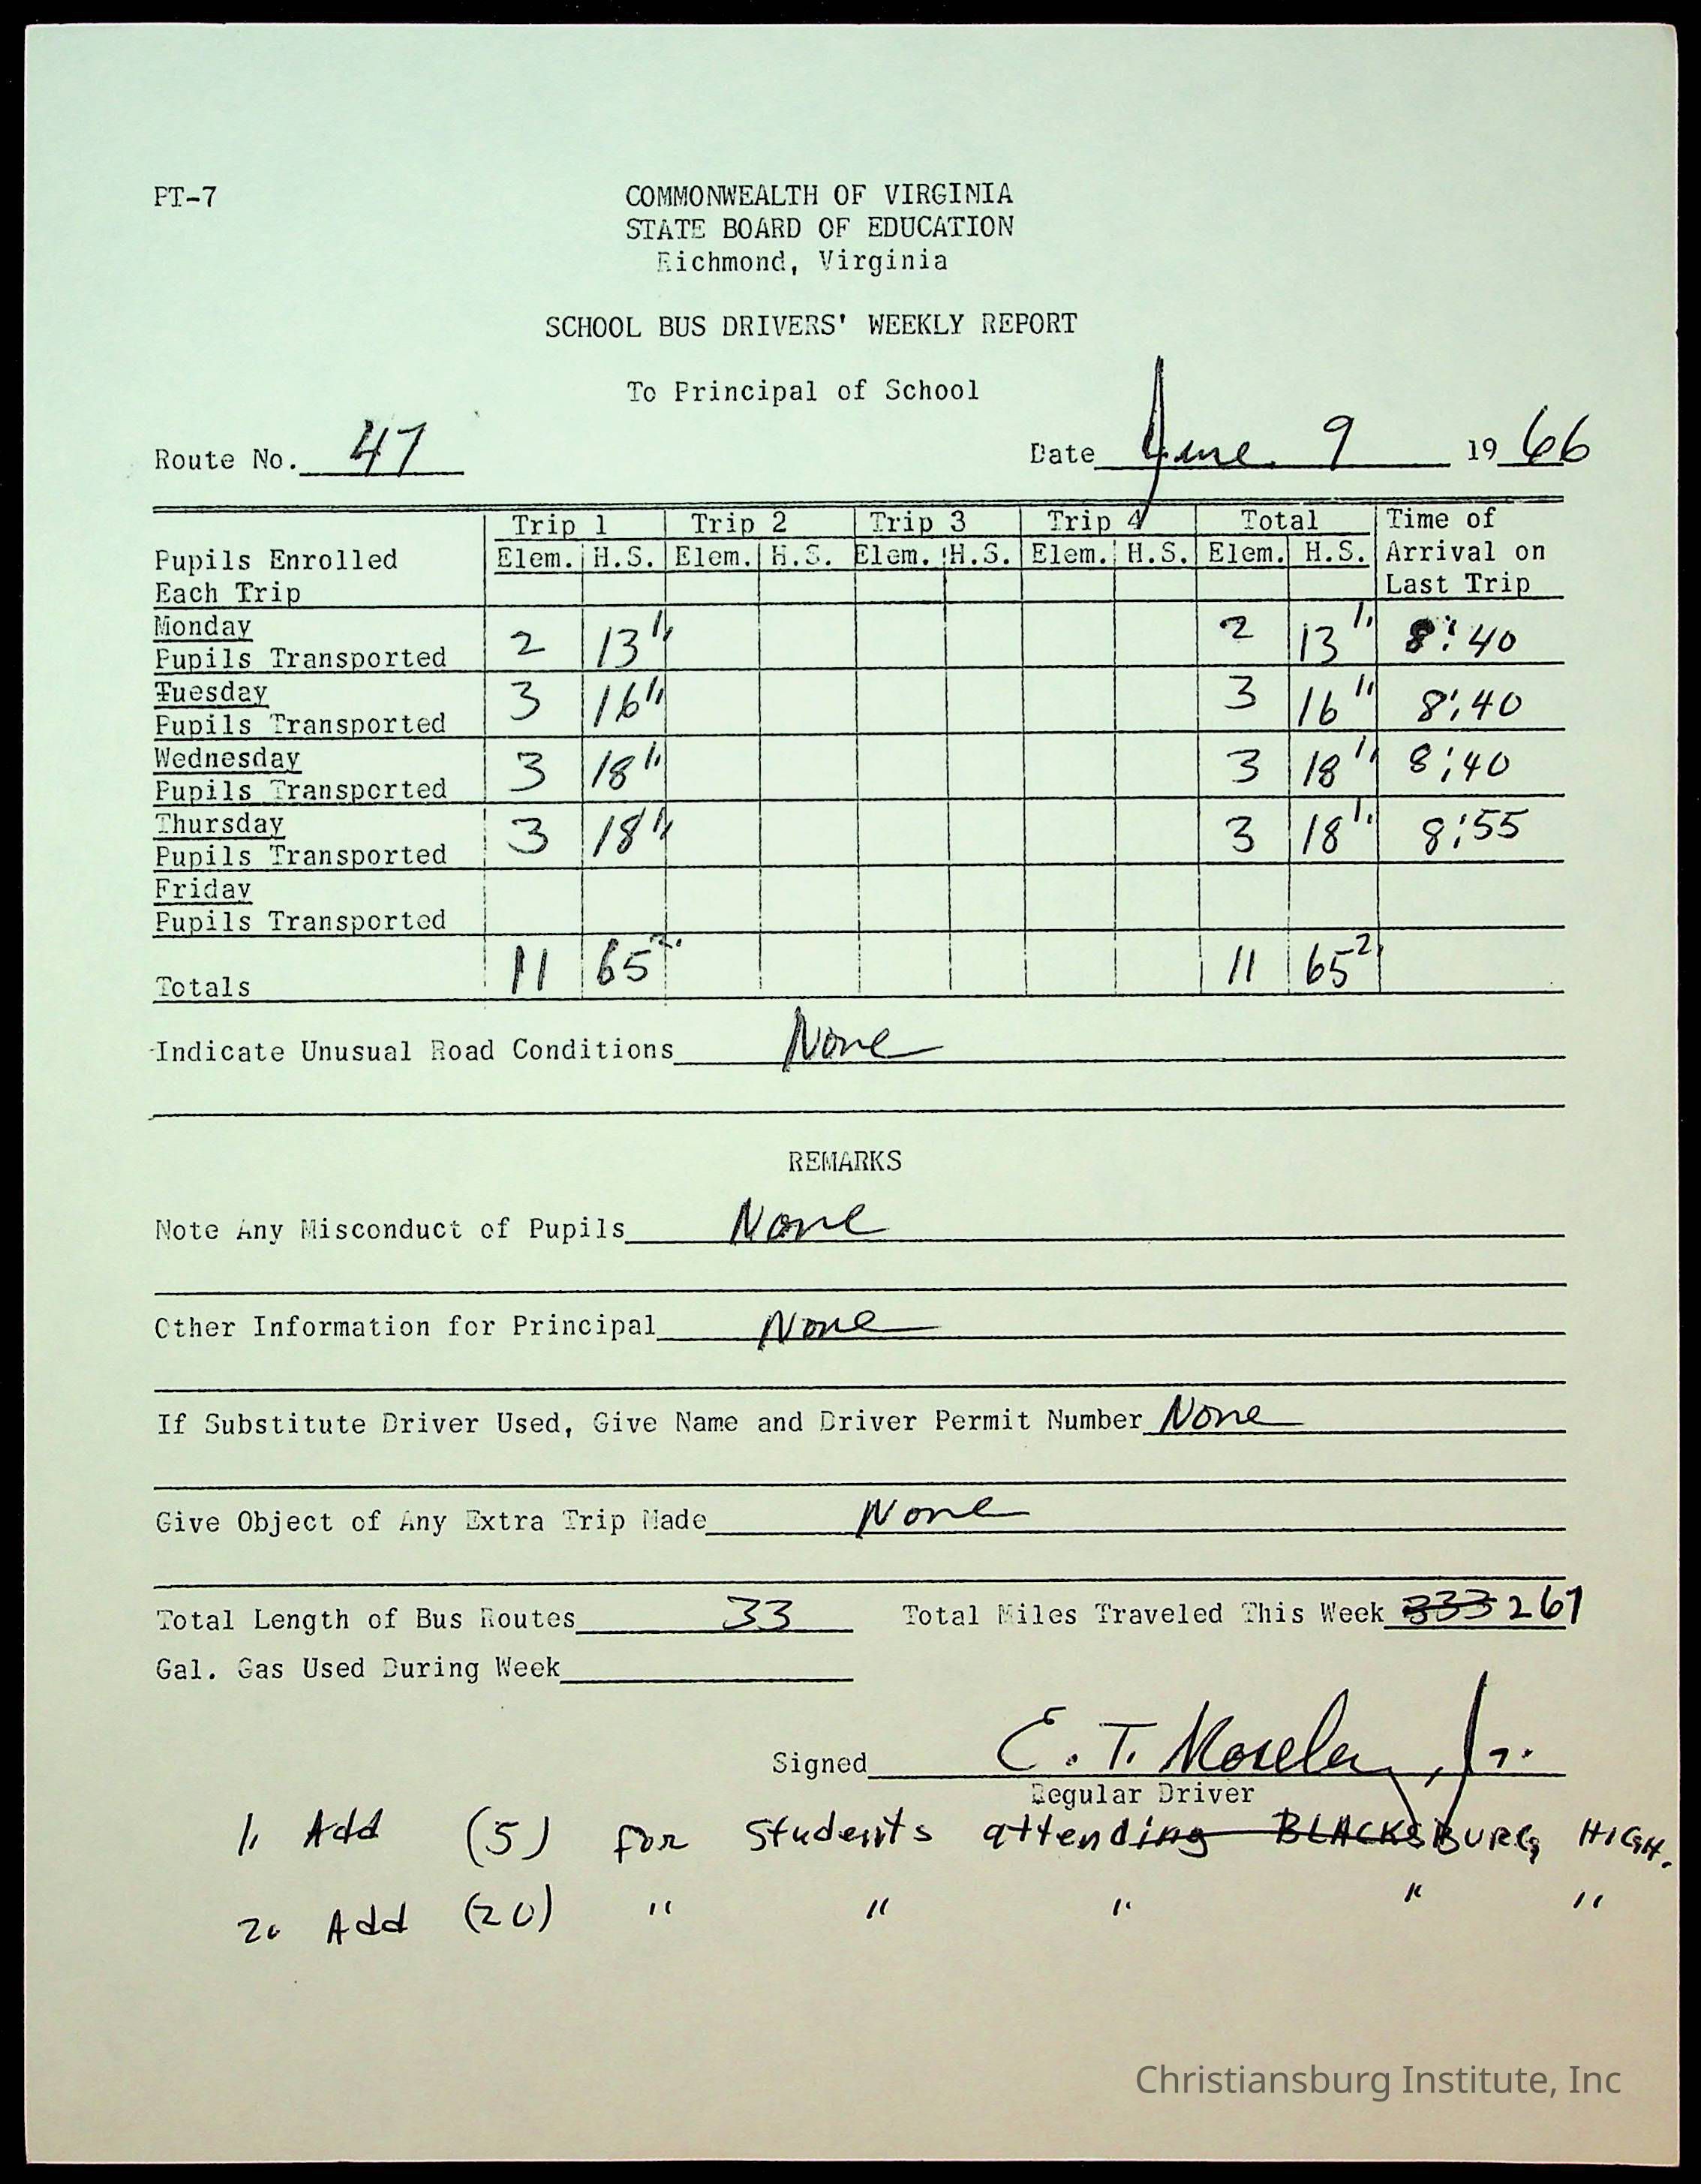 PT-7
COMMONWEALTH OF VIRGINIA
STATE BOARD OF EDUCATION
Richmond, Virginia
SCHOOL BUS DRIVERS' WEEKLY REPORT
To Principal of School
Route No. 47 Date June 9 1966
Trip 1 Trip 2 Trip 3 Trip 4 Total Time of
Pupils Enrolled Elem. H.S. Elem. H.S. Elem. H.S. Elem. H.S. Elem. H.S. Arrival on
Each Trip Last Trip
Monday
Pupils Transported 2 13 1. 2 13 1. 8:40
Tuesday
Pupils Transported 3 16 1. 3 16 1. 8:40
Wednesday
Pupils Transported 3 18 1. 3 18 1. 8:40
Thursday
Pupils Transported 3 18 1. 3 18 1. 8:55
Friday
Pupils Transported
Totals 11 65 2. 11 65 2.
Indicate Unusual Road Conditions None
REMARKS
Note Any Misconduct of Pupils None
Other Information for Principal None
If Substitute Driver Used, Give Name and Driver Permit Number None
Give Object of Any Extra Trip Made None
Total Length of Bus Routes 33 Total Miles Traveled This Week 333 267
Gal. Gas Used During Week
Signed E. T. Moseley, Jr.
Regular Driver
1. Add (5) for Students attending BLACKSBURG HIGH.
2. Add (20) " " " " "
Christiansburg Institute, Inc